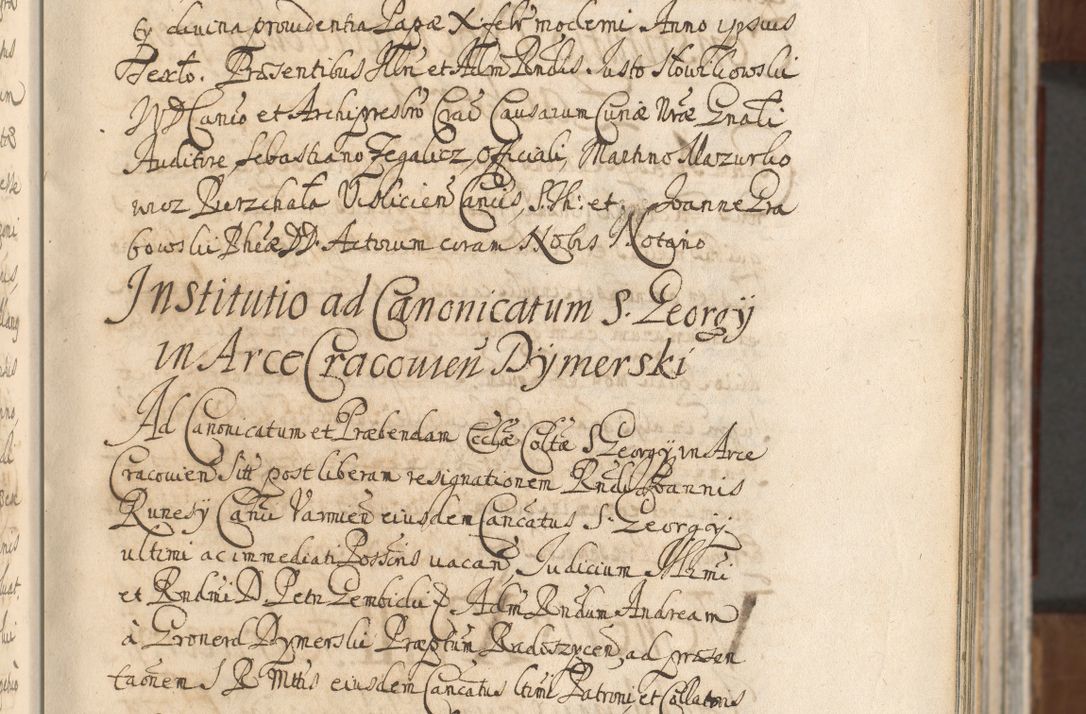 divina providentia Papæ X. felr̃ moderni Anno ipsius
Sexto. Præsentibus Illr̃i et Adm̃ Rndis Justo Słowikowski
JVD Canco et Archipresbr̃o Craĉ Causarum Curiæ Nræ Gnãli
Auditore, Sebastiano Zegalicz, Officiali, Martino Mazurko
wicz Pierzchała Vislicień Cancis, S. Th: et Joanne Gra
bowski Phiæ DD. Actorum coram Nobis Notario
Institutio ad Canonicatum S. Georgÿ
in Arce Cracovień Dÿmerski
Ad Canonicatum et Præbendam Eccłæ Collæ S. Georgÿ in Arce
Cracovień Sitt post liberam resignationem Rndi Joannis
Runesÿ Cańci Varmień eiusdem Cancatus S. Georgÿ
ultimi ac immediati Possoris vacań Judicium Illmi
et Rndmi D Petri Gembicki Adm̃ Rndum Andream
à Dymerski Præptum Radoszyceń, ad præsen
taõnem S R Mttis eiusdem Cancatus ltimi Patroni et Collatoris